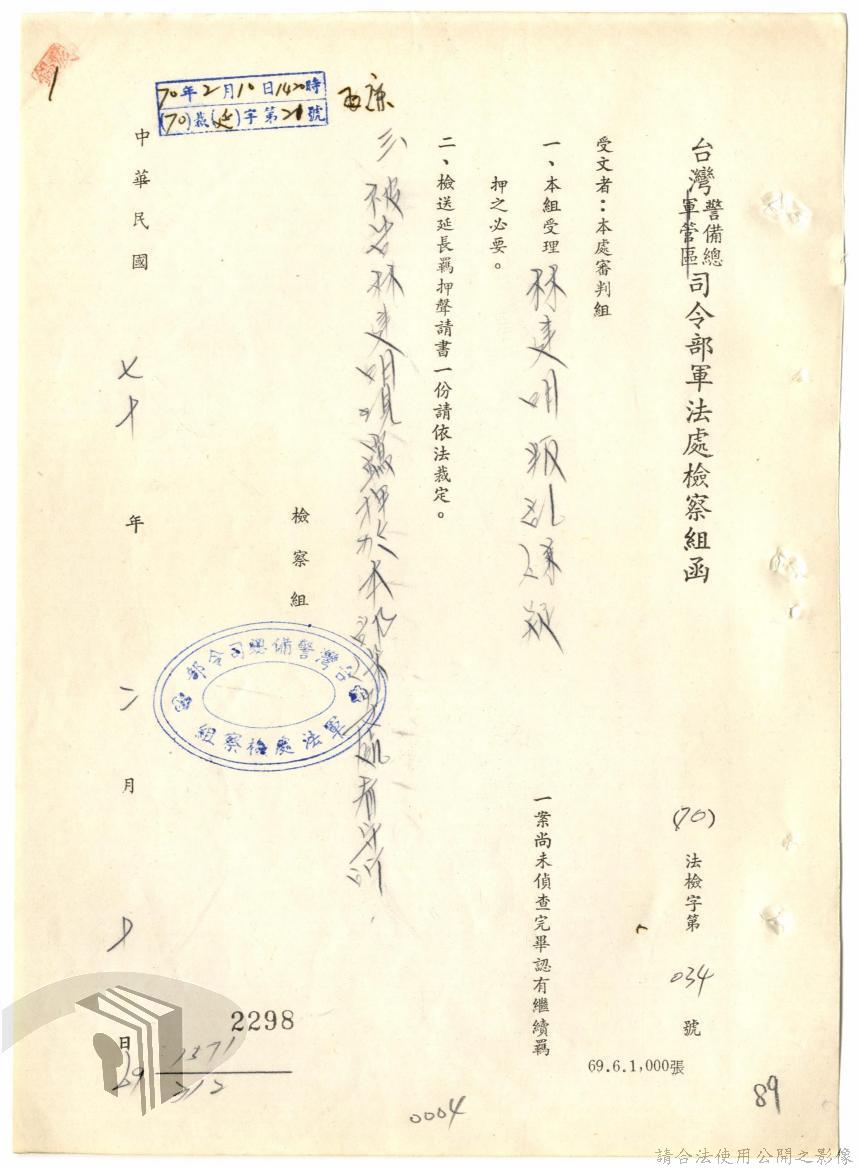 台灣警備總司令部軍法處檢察組函
軍管區
(70)法檢字第034號
受文者：本處審判組
一、本組受理林建明叛亂嫌疑一案尚未偵查完畢認有繼續羈
押之必要。
二、檢送延長羈押聲請書一份請依法裁定。
三、被告林建明現羈押於本部
檢察組
台灣警備總司令部
軍法處檢察組
中華民國七十年二月十日
70年2月10日1420時
(70)裁(延)字第21號
1
69.6.1,000張
2298
1371
212
0004
89
請合法使用公開之影像